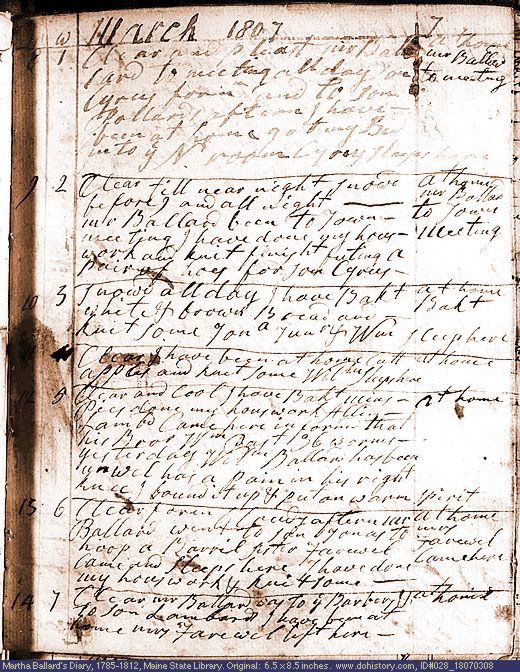 W March 1807 7
1 Clear and pleast mr Ballard At home
and to meeting all day Jon mr Ballard
Cyrus forin and to Son to meeting
Pollards aftern I have
been at home got my Bed
into N room Cyrus sleeps here
9 2 Clear till near night snowd at home
before 9 and all night mr Ballard
mr Ballard been to Town to Town
meeting I have done my hous Meeting
work and knit finisht futing a
pair of hoes for Son Cyrus
10 3 Snowd all day I have Bakt at home
white & brown Bread and Bakt
knit Some Jona Junr & Wm Sleep here
4 Clear I have been at home Cutt at home
apples and knit Some Wm Sleeps here
12 5 Clear and Cool I have Bakt mins at home
Pies done my housework Allin
Lambd Came here inform that
his Bror Wm Cast 136 worms
yesterday Wm Ballard has been
unwel has a Pain in his right
knee I bound it up & put on warm spirit
13 6 Clear foren Cloudy aftern mr at home
Ballard went to Son Jonas to mrs
hoop a Barril Sistr Farewel Farewel
Came and Sleeps here I have done Came here
my housework & knit Some
14 7 Clear mr Ballard was to y Barbers at home
to Son Lambard I have been at
home mrs Farewel left here
Martha Ballard's Diary, 1785-1812, Maine State Library. Original: 6.5 x 8.5 inches. www.dohistory.com, ID#028_18070308